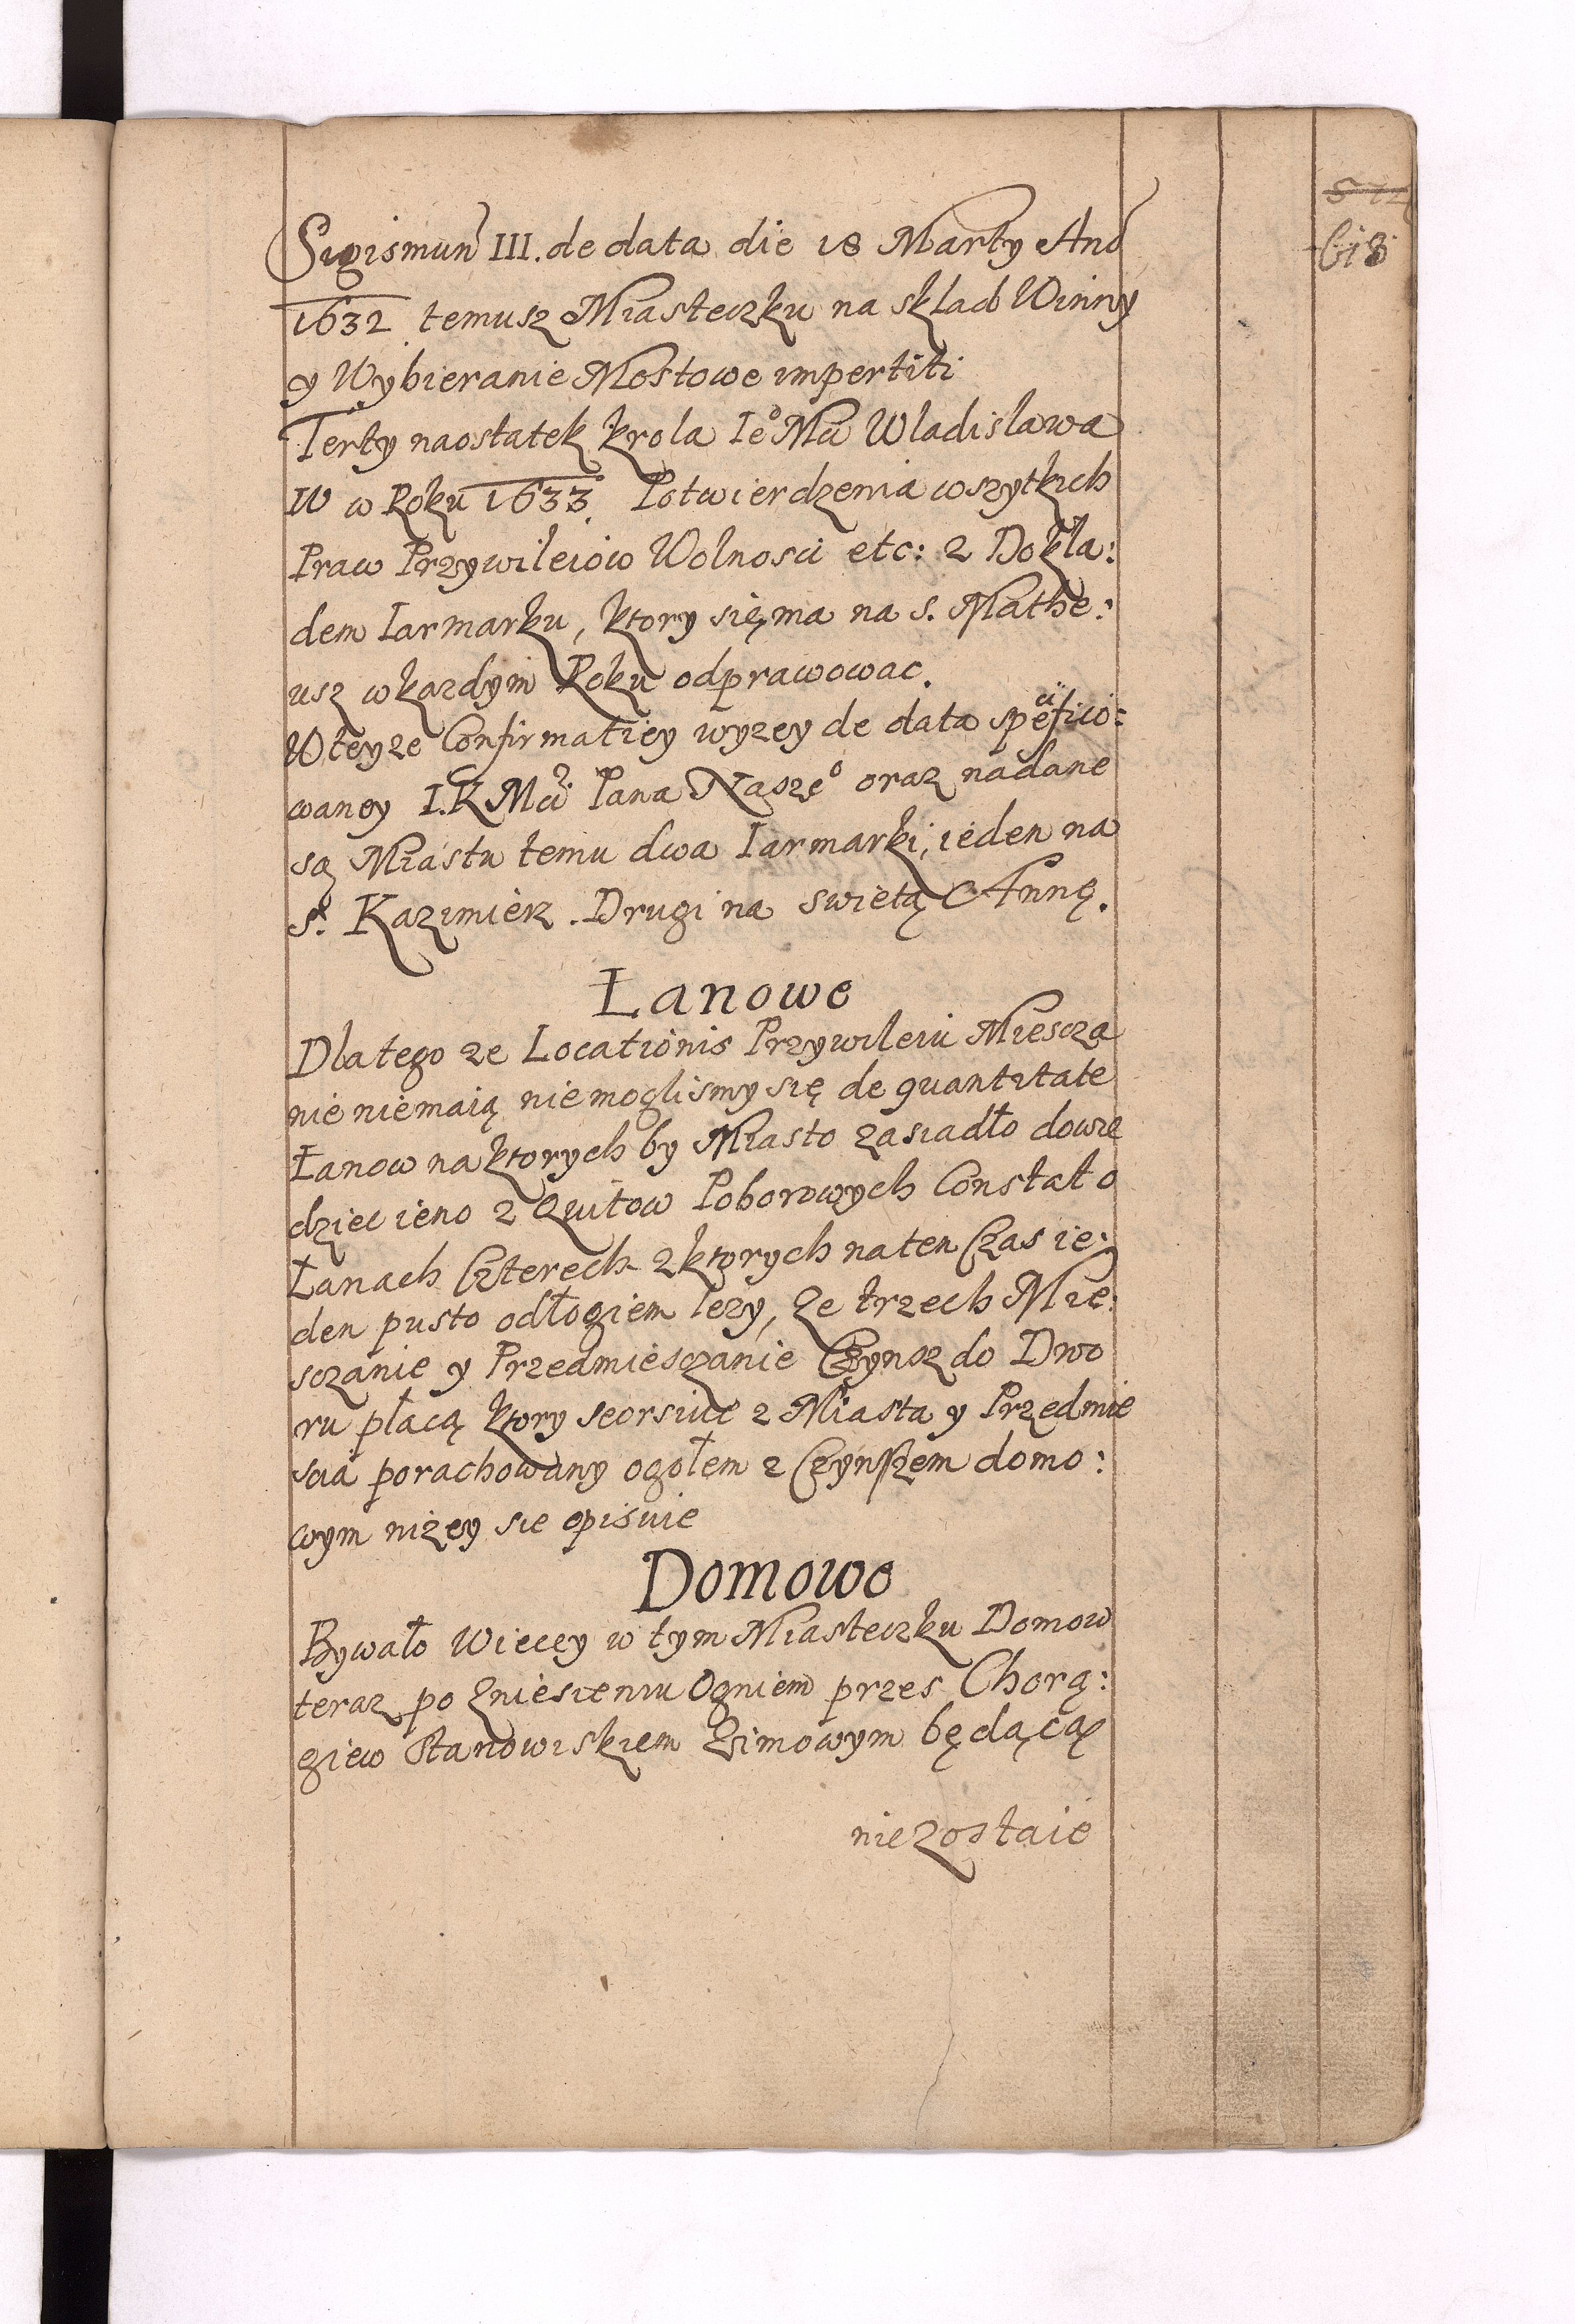 618
Sigismun III. de data die 18 Marty Ano
1632 temusz Miasteczku na sklad Winny
y Wybieranie Mostowe impertiti
Terty naostatek krola Ieo Mci Wladislawa
IV w Roku 1633 Potwierdzenia wszytkich
Praw Przywileiow Wolnosci etc: z Dokła:
dem Iarmarku, ktory się ma na S. Mathe:
usz w kazdym Roku odprawowac.
W teyze Confirmatiey wyzey de data specifico:
waney I.K Mci Pana Naszeo oraz nadane
są Miastu temu dwa Iarmarki, ieden na
S. Kazimierz. Drugi na swietą Annę.
Łanowe
Dlatego ze Locationis Przywileiu Miescza
nie niemaią niemoglismy się de quantitate
Łanow na ktorych by Miasto zasiadło dowie
dziec ieno z Quitow Poborowych Constat o
Łanach Czterech z ktorych na ten Czas ie:
den pusto odłogiem lezy, ze trzech Mie:
sczanie y Przedmiesczanie Czynsz do Dwo
ru płacą ktory seorsiue z Miasta y Przedmie
scia porachowany ogołem z Czynszem domo:
wym nizey sie opisuie
Domowe
Bywało Wiecey w tym Miasteczku Domow
teraz po Zniesieniu Ogniem przes Chorą:
giew Stanowiskiem Zimowym będącą
nie Zostaie